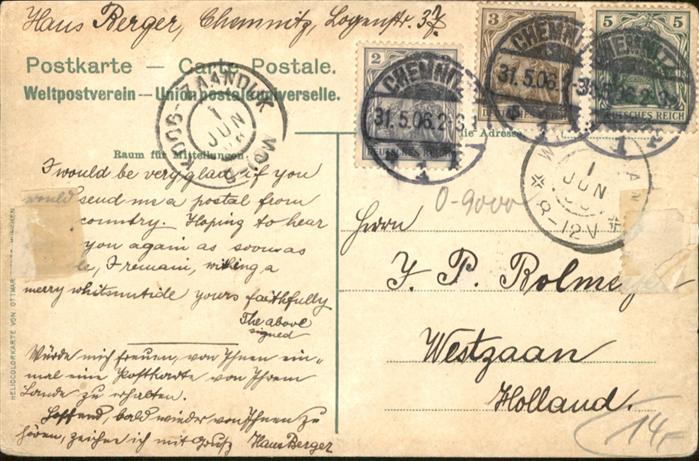 Hans Berger, Chemnitz, Logenstr. 37
Postkarte — Carte Postale.
Weltpostverein — Union postale universelle.
2
DEUTSCHES REICH
3
5 5
DEUTSCHES REICH
CHEMNITZ
31.5.06.
1
CHEMNITZ
31.5.06.
1
CHEMNITZ
1
KOOG-ZAANDIJK
1
JUN
1
JUN
8-12V
die Adresse
Raum für Mitteilungen
I would be very glad if you
would send me a postal from
country. Hoping to hear
you again as soon as
I remain, wishing a
merry whitsuntide yours faithfully
The above
signed
Würde mich freuen, von Ihnen ein-
mal eine Postkarte von Ihrem
Lande zu erhalten.
Hoffend, bald wieder von Ihnen zu
hören, zeichne ich mit Gruß Hans Berger
0-9000
Herrn
J. P. Rolme
Westzaan
Holland.
14.-
HELIOCOLORKARTE VON OTTMAR
MÜNCHEN